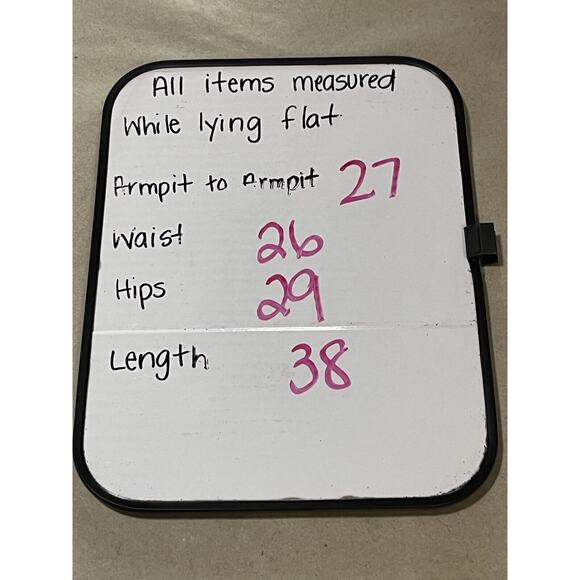 All items measured
While lying flat.
Armpit to Armpit 27
Waist 26
Hips 29
Length 38